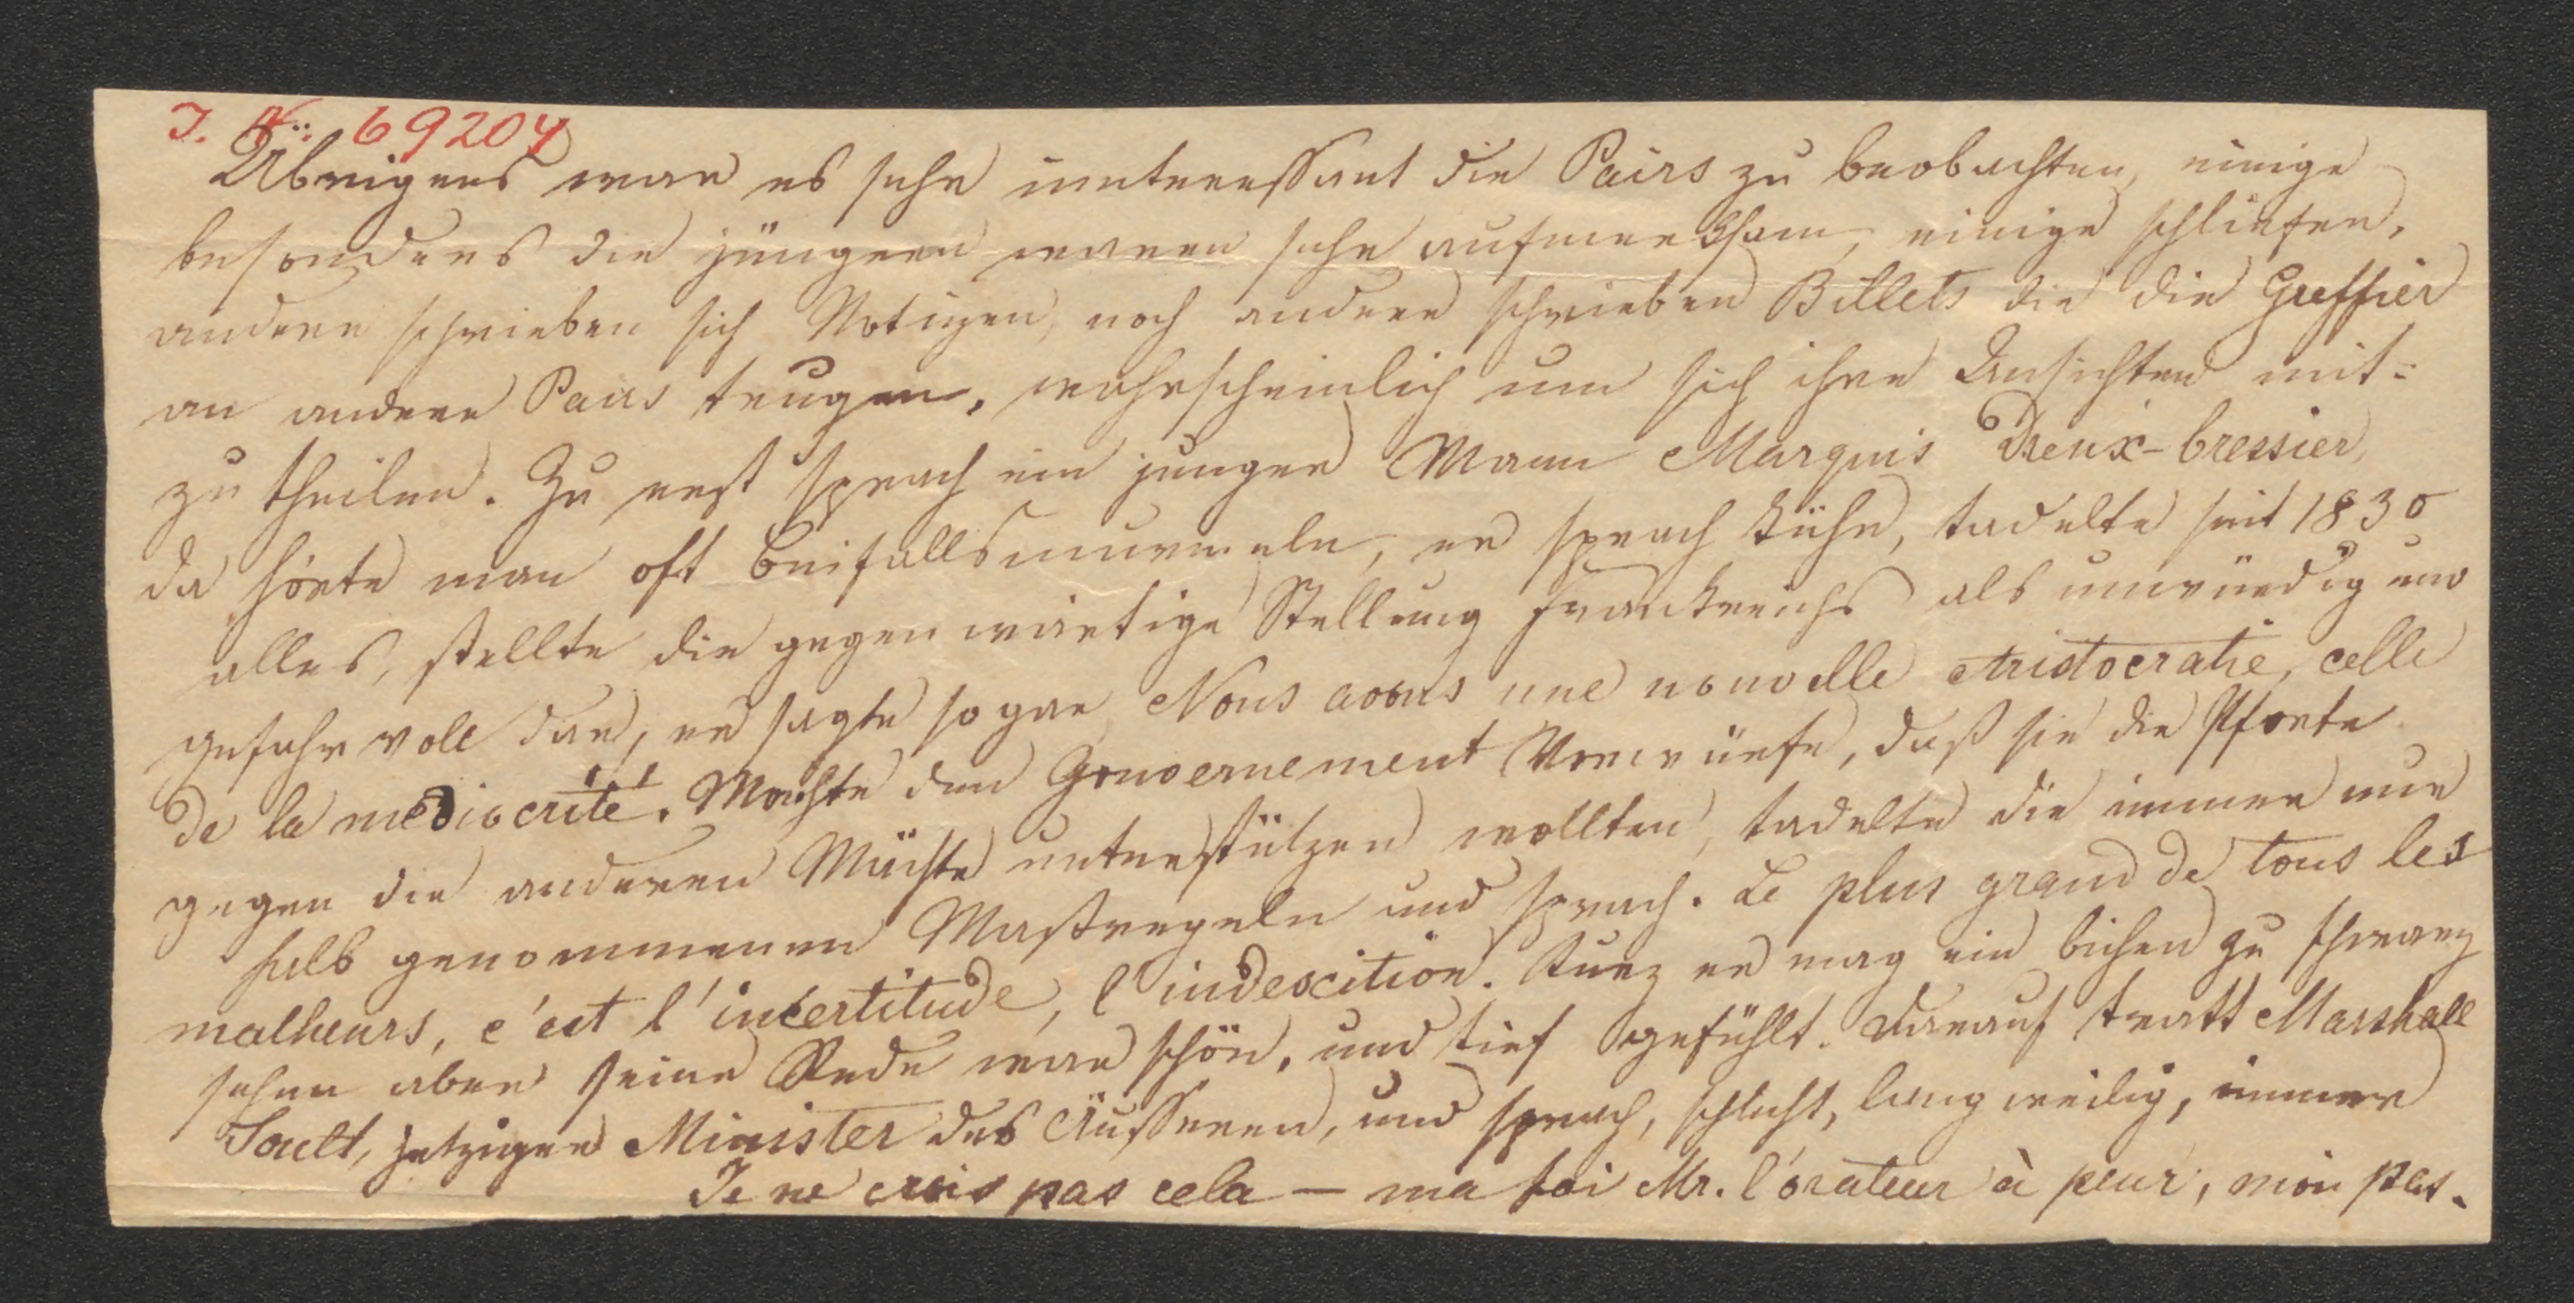 J. N: 69204
Übrigens war es sehr innteressant die Pairs zu beobachten, einige
besonders die jüngern waren sehr aufmerksam, einige schliefen,
andere schrieben sich Notizen, noch andere schrieben Billets die die Greffier
an andere Pairs trugen, wahrscheinlich um sich ihre Ansichten mit-
zu theilen. Zu erst sprach ein junger Mann Marquis Dreux-bressier,
da hörte man oft Beifallsmurmeln, er sprach kühn, tadelte seit 1830
alles, stellte die gegenwärtige Stellung Frankreichs als unwürdig und
gefahrvoll dar, er sagte sogar Nous avons une nouvelle Aristocratie, celle
de la mediocrité. Machte dem Gouvernement Vorwürfe, daß sie die Pforte
gegen die anderen Mächte unterstützen wollten, tadelte die immer nur
halb genommenen Maßregeln und sprach. Le plus grand de tous les
malheurs, c'est l'incertitude, l'indescition. Kurz er mag ein bichen zu schwarz
sehen aber seine Rede war schön, und tief gefühlt. Darauf tratt Marshall
Soult, jetziger Minister des Äusseren, und sprach, schlecht, langweilig, immer
Je ne crois pas cela — ma foi Mr. l'orateur à peur, moi pas.